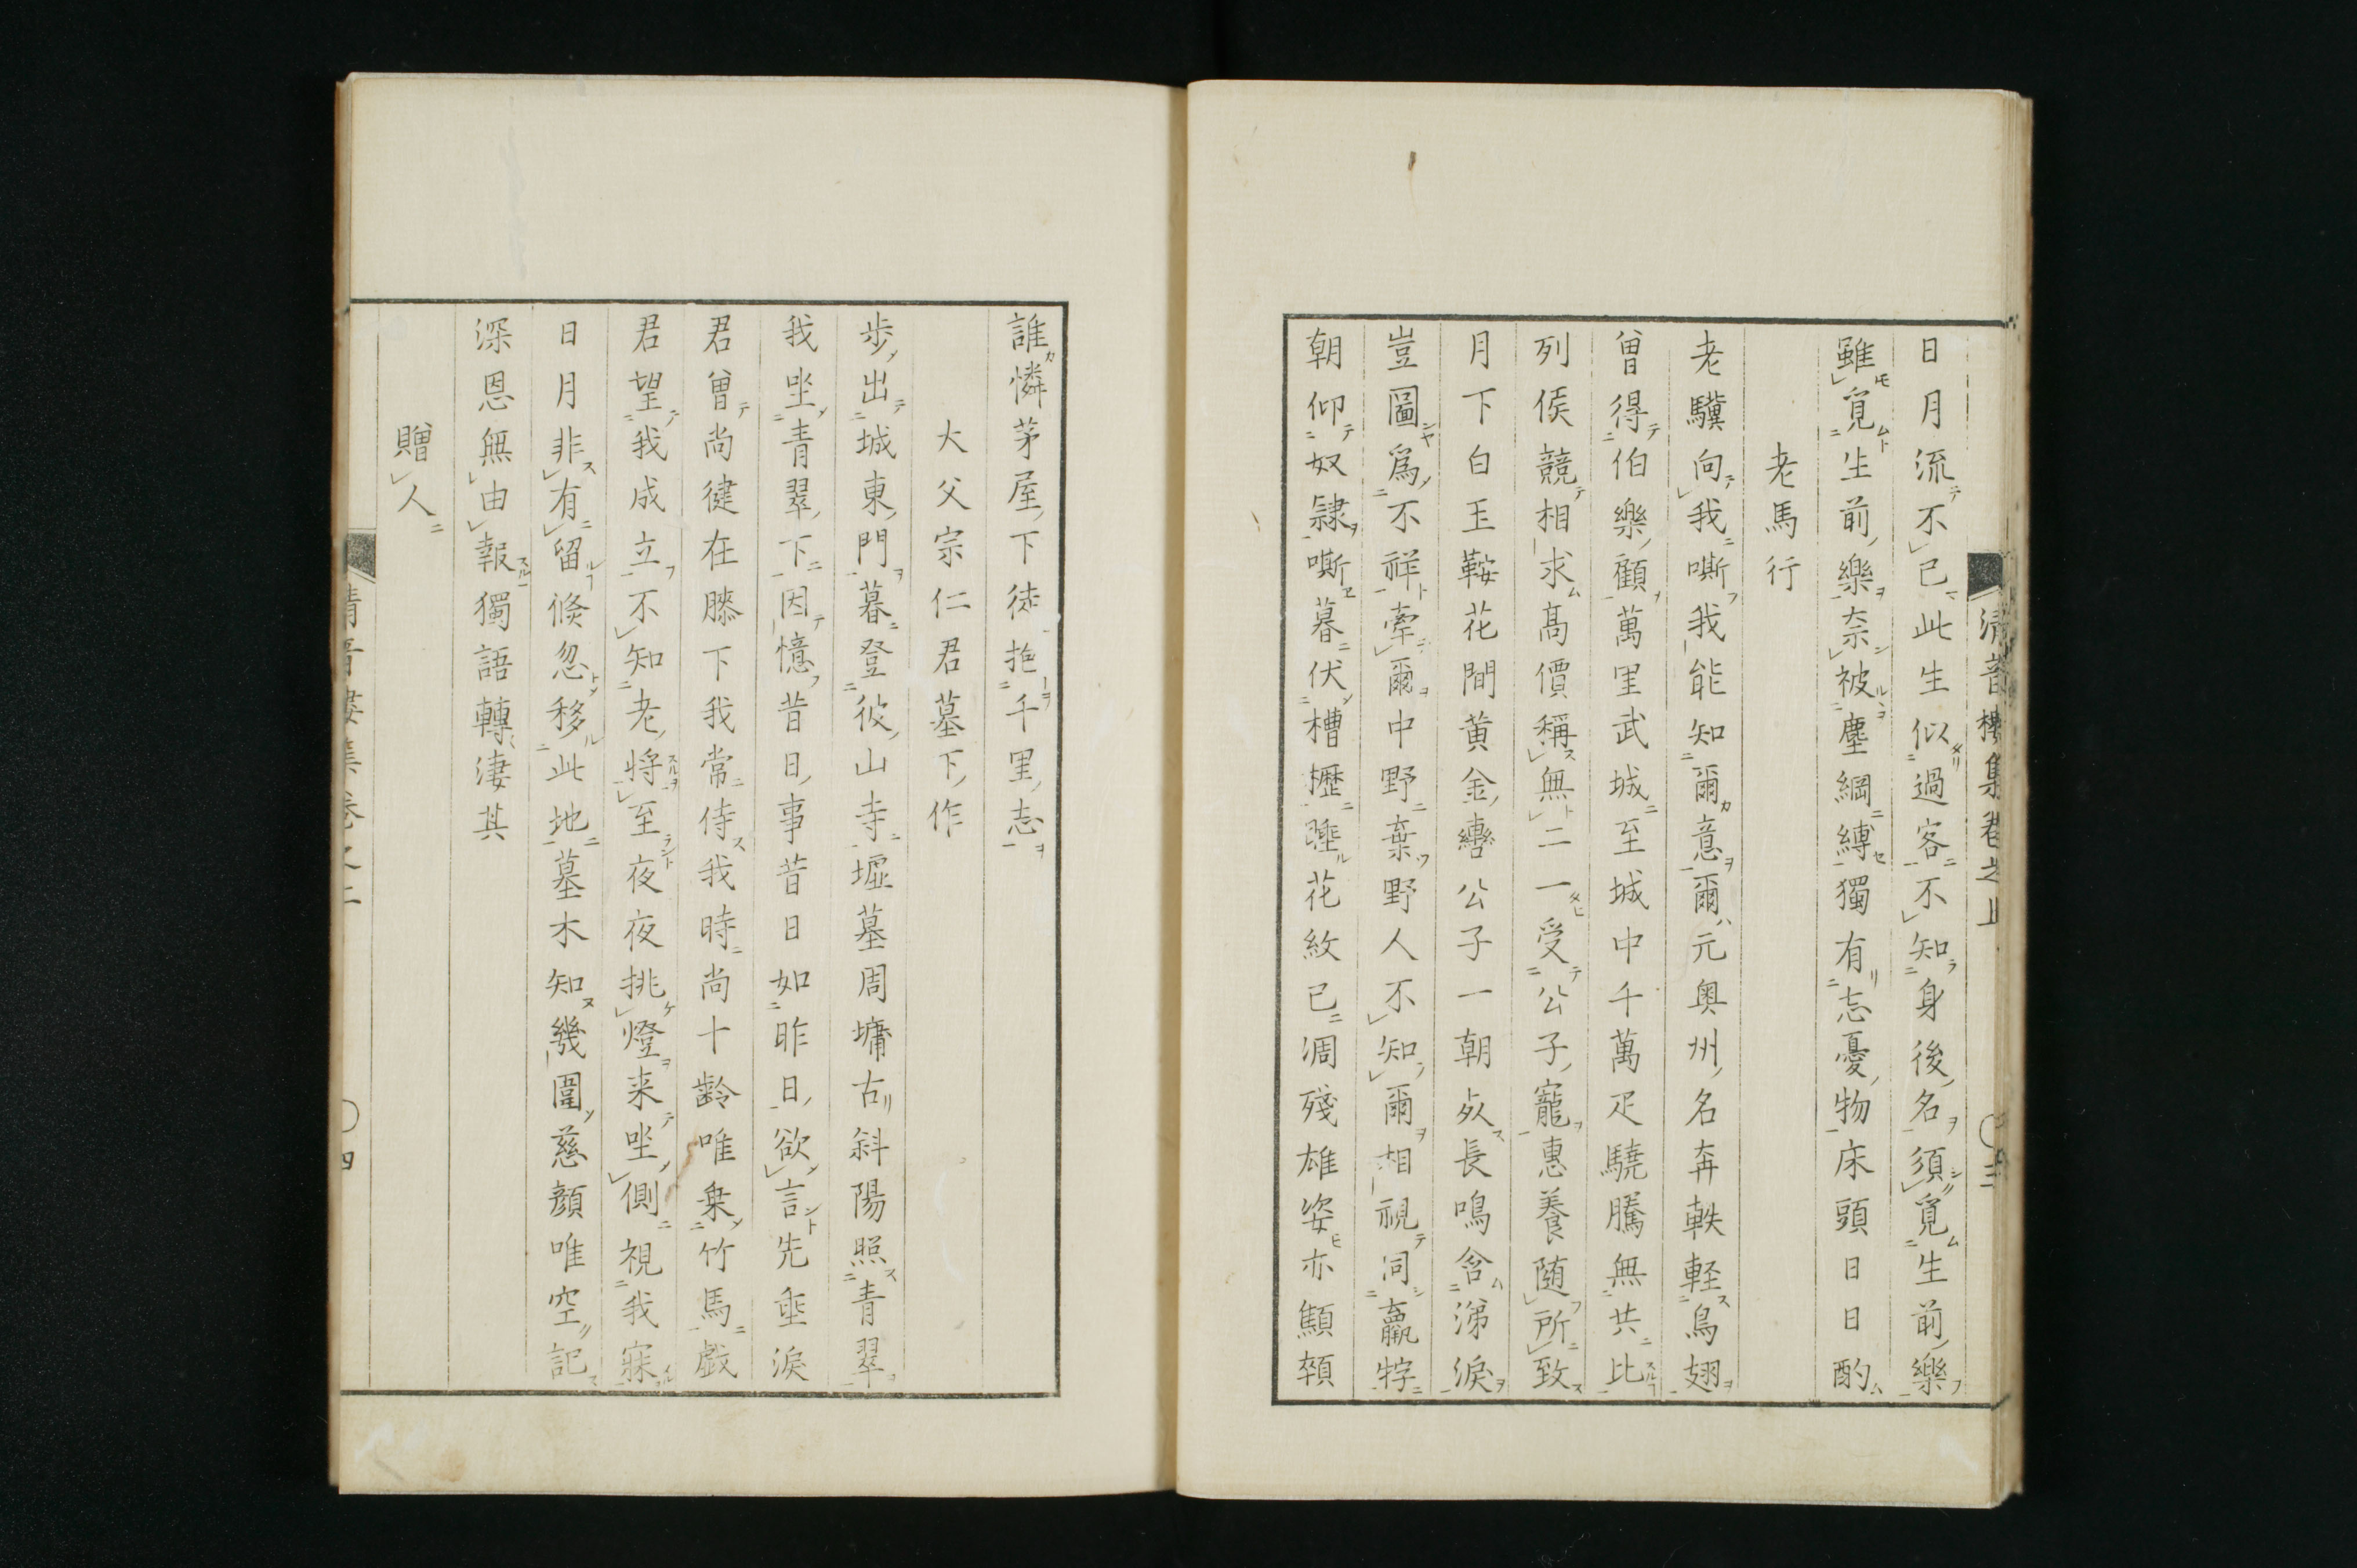 日月流不已此生似過客不知身後名須覓生前樂
雖覓生前樂奈被塵網縛獨有忘憂物床頭日日酌
老馬行
老驥向我嘶我能知爾意爾元奥州名奔軼軽鳥翅
曽得伯樂顧萬里武城至城中千萬疋驍騰無共比
列侯競相求髙價稱無二一受公子寵惠養随所致
月下白玉鞍花間黄金轡公子一朝
長鳴含涕淚
豈圖爲不祥牽爾中野棄野人不知爾相視同羸牸
朝仰奴隷嘶暮伏槽櫪睡花紋已凋殘雄姿亦顦顇
清音樓集卷之上
三
誰憐茅屋下徒抱千里志
大父宗仁君墓下作
歩出城東門暮登彼山寺墟墓周墉古斜陽照青翠
我坐青翠下因憶昔日事昔日如昨日欲言先垂淚
君曽尚健在膝下我常侍我時尚十齡唯乗竹馬戯
君望我成立不知老将至夜夜挑燈来坐側視我寐
日月非有留倏忽移此地墓木知幾圍慈顔唯空記
深恩無由報獨語轉淒其
贈人
四